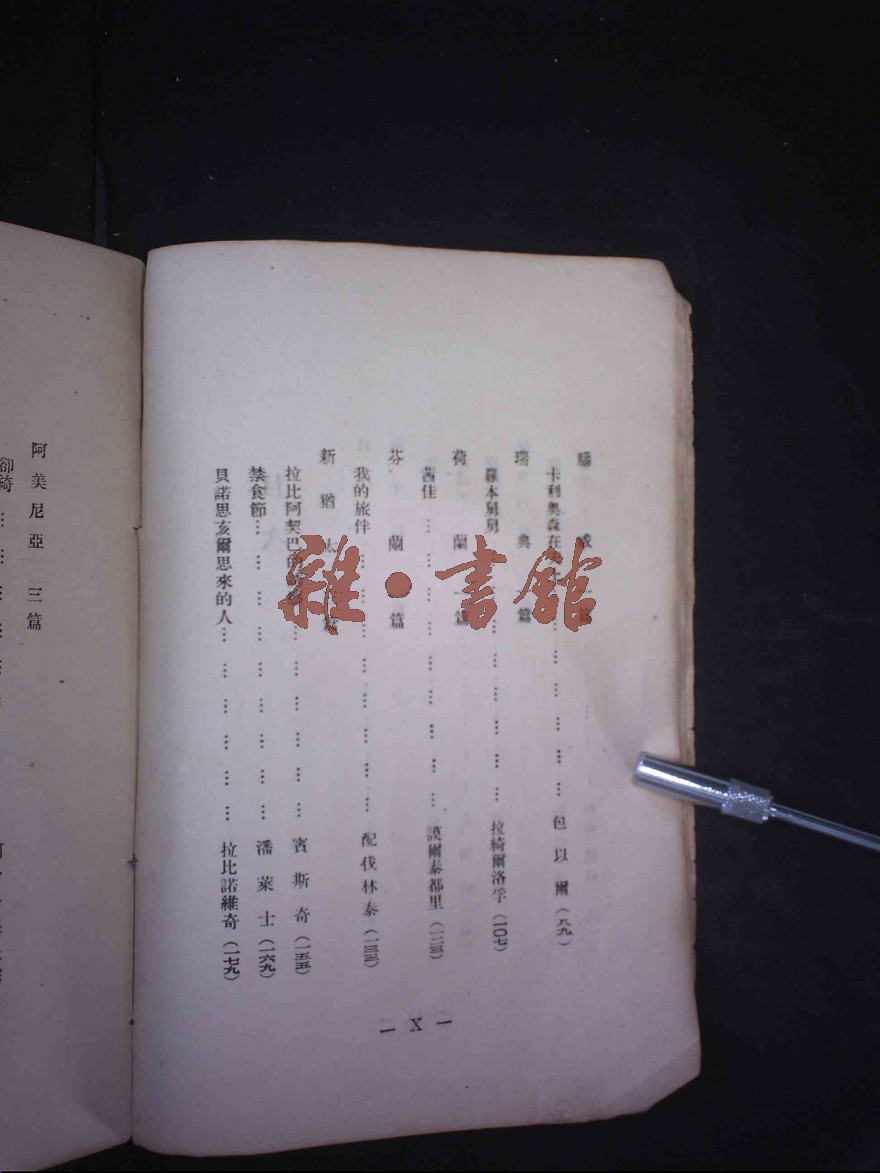 腦威 一篇
卡利奧森在 … … … … … … 包以爾(八九)
瑞典 篇
羅本舅舅 … … … … … … 拉綺爾洛孚(一〇七)
荷蘭 一篇
茜佳 … … … … … … … … 謨爾泰都里(一二三)
芬蘭 篇
我的旅伴 … … … … … … … 配伐林泰(一三三)
新猶太 篇
拉比阿契巴的 … … … … … … 賓斯奇(一五五)
禁食節… … … … … … … … 潘萊士(一六九)
貝諾思亥爾思來的人… … … … … … 拉比諾維奇(一七九)
— X —
阿美尼亞 三篇
卻綺 … … …
雜•書館